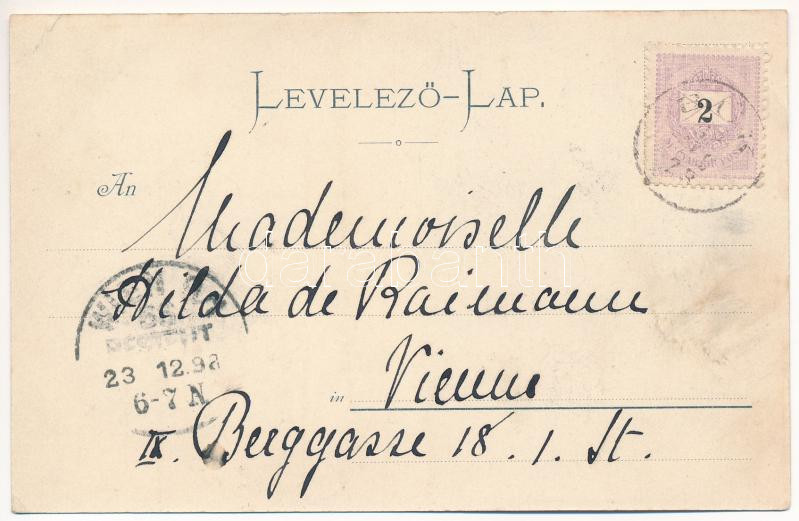 LEVELEZŐ-LAP.
2
An
Mademoiselle
Hilda de Raimann
in Vienne
IX. Berggasse 18. 1. St.
WIEN
BESTELLT
23 12.98
6-7 N
darabanth